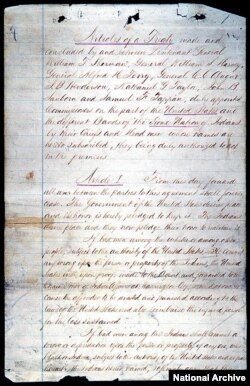 Articles of a Treaty made and
concluded by and between Lieutenant General
William T. Sherman, General William S. Harney,
General Alfred H. Terry, General C. C. Augur
J. B. Henderson, Nathaniel G. Taylor, John B.
Sanborn and Samuel F. Tappan, duly appointed
Commissioners on the part of the United States and
the different Bands of the Sioux Nation of Indians
by their Chiefs and Head men whose names are
hereto subscribed, they being duly authorized to act
in the premises.
Article I. From this day forward
all war between the parties to this agreement shall forever
cease. The Government of the United States desires peace
and its honor is hereby pledged to keep it. The Indians
desire peace and they now pledge their honor to maintain it.
If bad men among the whites or among other
people, subject to the authority of the United States shall commit
any wrong upon the person or property of the Indians, the United
States will, upon proof made to the Agent and forwarded to the
Commissioner of Indian Affairs at Washington City, proceed at once
to cause the offender to be arrested and punished according to the
laws of the United States and also reimburse the injured person
for the loss sustained.
If bad men among the Indians shall commit a
wrong or depredation upon the person or property of any one, white,
black or Indian, subject to the authority of the United States and at peace
National Archive